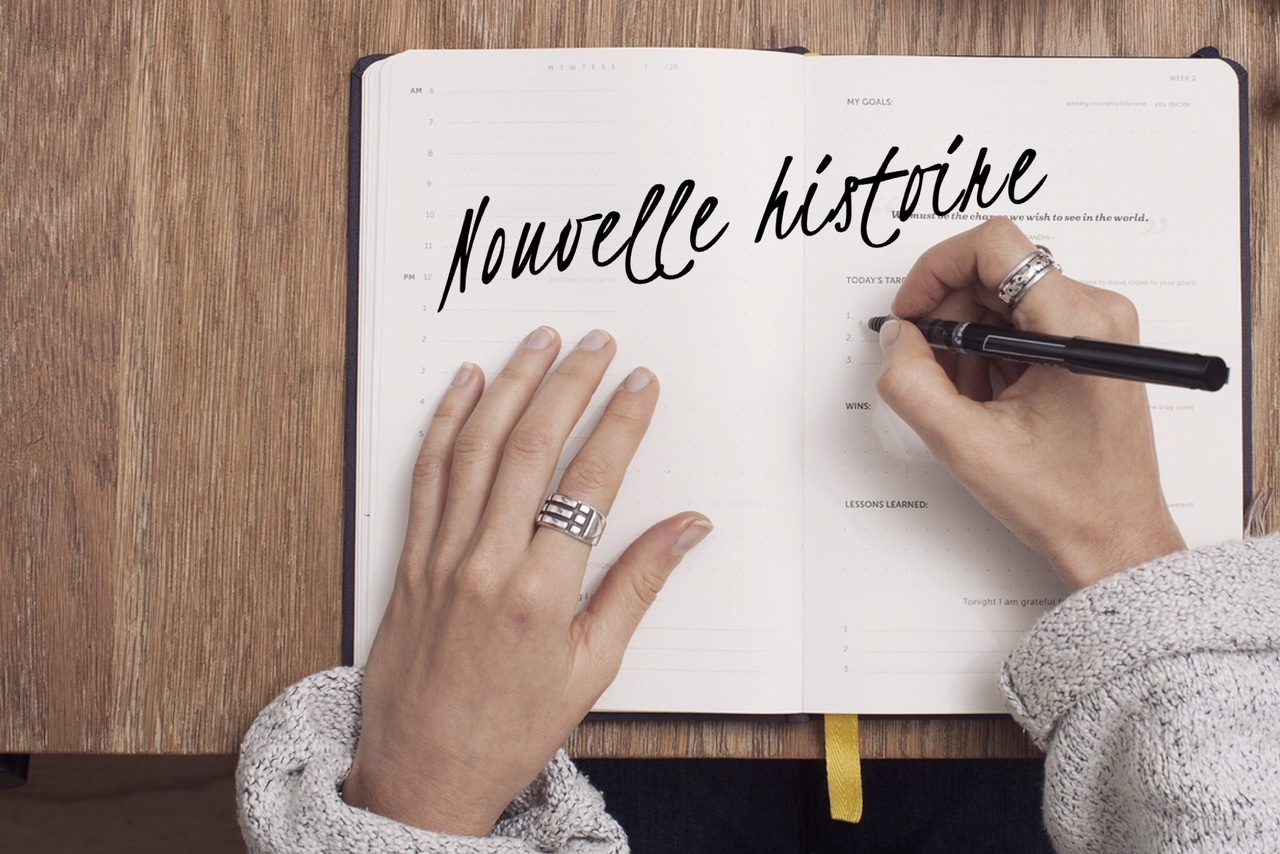 M T W T F S S / / 20
AM 6
7
8
9
10
11
PM 12
1
2
3
4
5
Nouvelle histoire
WEEK 2
MY GOALS:
weekly/monthly/lifetime... you decide
We must be the change we wish to see in the world.
GANDHI –
TODAY'S
to move closer to your goals)
1.
2.
3.
WINS:
brag zone)
LESSONS LEARNED:
Tonight I am grateful
1.
2.
3.